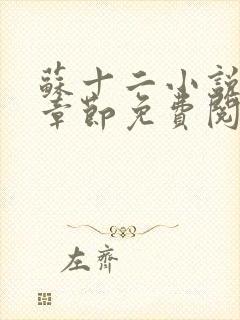 蘇十二小說
章節免費閱
左齊